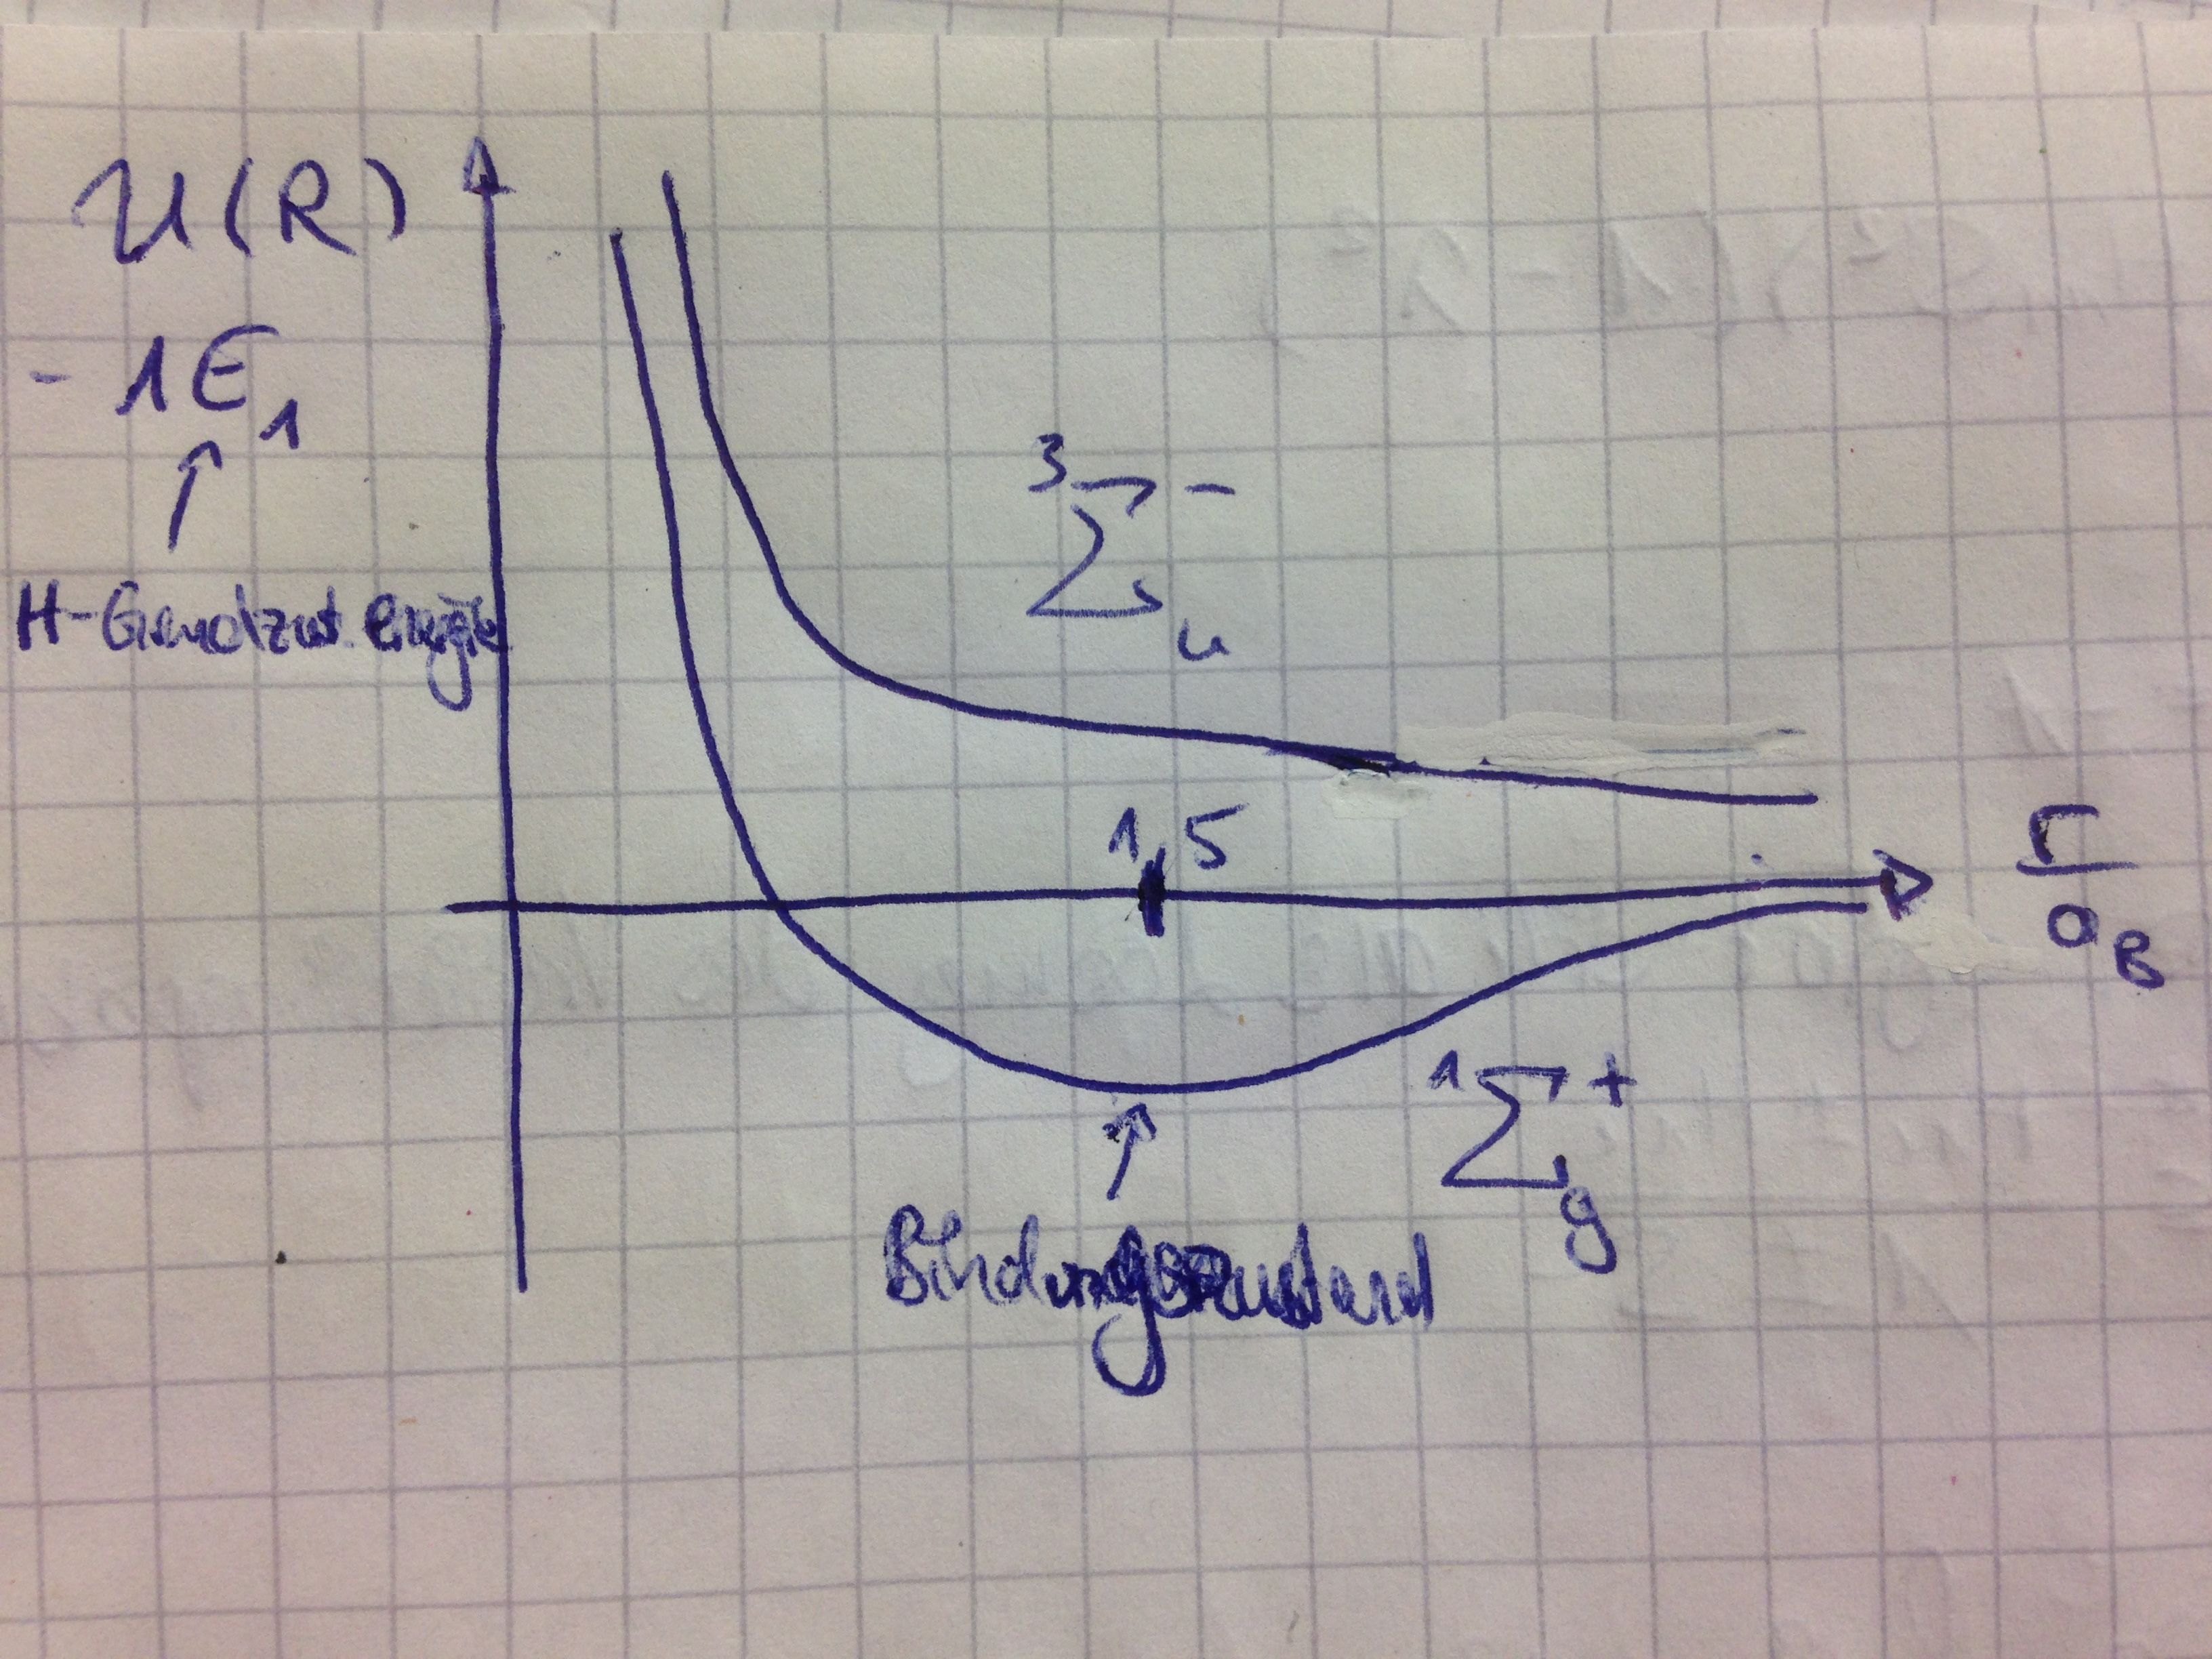 U(R)
- 1E₁
↑
H-Grundzust. energie
³Σ⁻ᵤ
1,5
r
a_B
¹Σ⁺g
↑
Bindungszustand